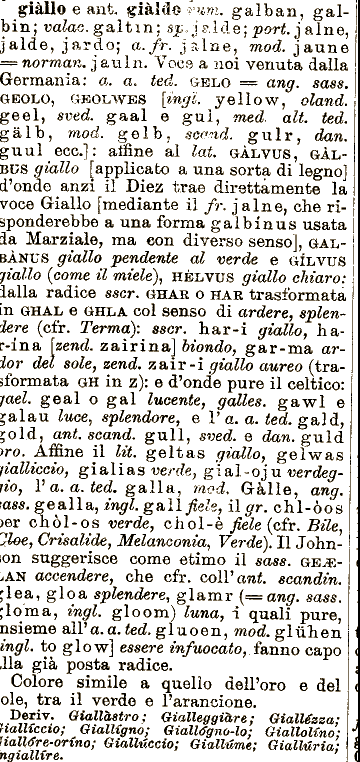 giàllo e ant. giàldo rum. galban, gal-
bin; valac. galtin; sp. jalde; port. jalne,
jalde, jardo; a. fr. jalne, mod. jaune
= norman. jauln. Voce a noi venuta dalla
Germania: a. a. ted. GELO = ang. sass.
GEOLO, GEOLWES [ingl. yellow, oland.
geel, sved. gaal e gul, med. alt. ted.
gälb, mod. gelb, scand. gulr, dan.
guul ecc.]: affine al lat. GÀLVUS, GÀL-
BUS giallo [applicato a una sorta di legno]
d'onde anzi il Diez trae direttamente la
voce Giallo [mediante il fr. jalne, che ri-
sponderebbe a una forma galbínus usata
da Marziale, ma con diverso senso], GAL-
BÀNUS giallo pendente al verde e GÍLVUS
giallo (come il miele), HÈLVUS giallo chiaro:
dalla radice sscr. GHAR O HAR trasformata
in GHAL e GHLA col senso di ardere, splen-
dere (cfr. Terma): sscr. har-i giallo, ha-
r-ina [zend. zairina] biondo, gar-ma ar-
dor del sole, zend. zair-i giallo aureo (tra-
sformata GH in z): e d'onde pure il celtico:
gael. geal o gal lucente, galles. gawl e
galau luce, splendore, e l'a. a. ted. gald,
gold, ant. scand. gull, sved. e dan. guld
oro. Affine il lit. geltas giallo, gelwas
gialliccio, gialias verde, gial-oju verdeg-
gio, l'a. a. ted. galla, mod. Gàlle, ang.
sass. gealla, ingl. gall fiele, il gr. chl-òos
per chòl-os verde, chol-è fiele (cfr. Bile,
Cloe, Crisalide, Melanconia, Verde). Il John-
son suggerisce come etimo il sass. GEÆ-
LAN accendere, che cfr. coll'ant. scandin.
glea, gloa splendere, glamr (= ang. sass.
gloma, ingl. gloom) luna, i quali pure,
insieme all'a. a. ted. gluoen, mod. glühen
[ingl. to glow] essere infuocato, fanno capo
alla già posta radice.
Colore simile a quello dell'oro e del
sole, tra il verde e l'arancione.
Deriv. Giallàstro; Gialleggiàre; Giallézza;
Gialliccio; Giallígno; Giallógno-lo; Giallolíno;
Giallóre-orino; Giallúccio; Giallúme; Giallúria;
Ingiallíre.